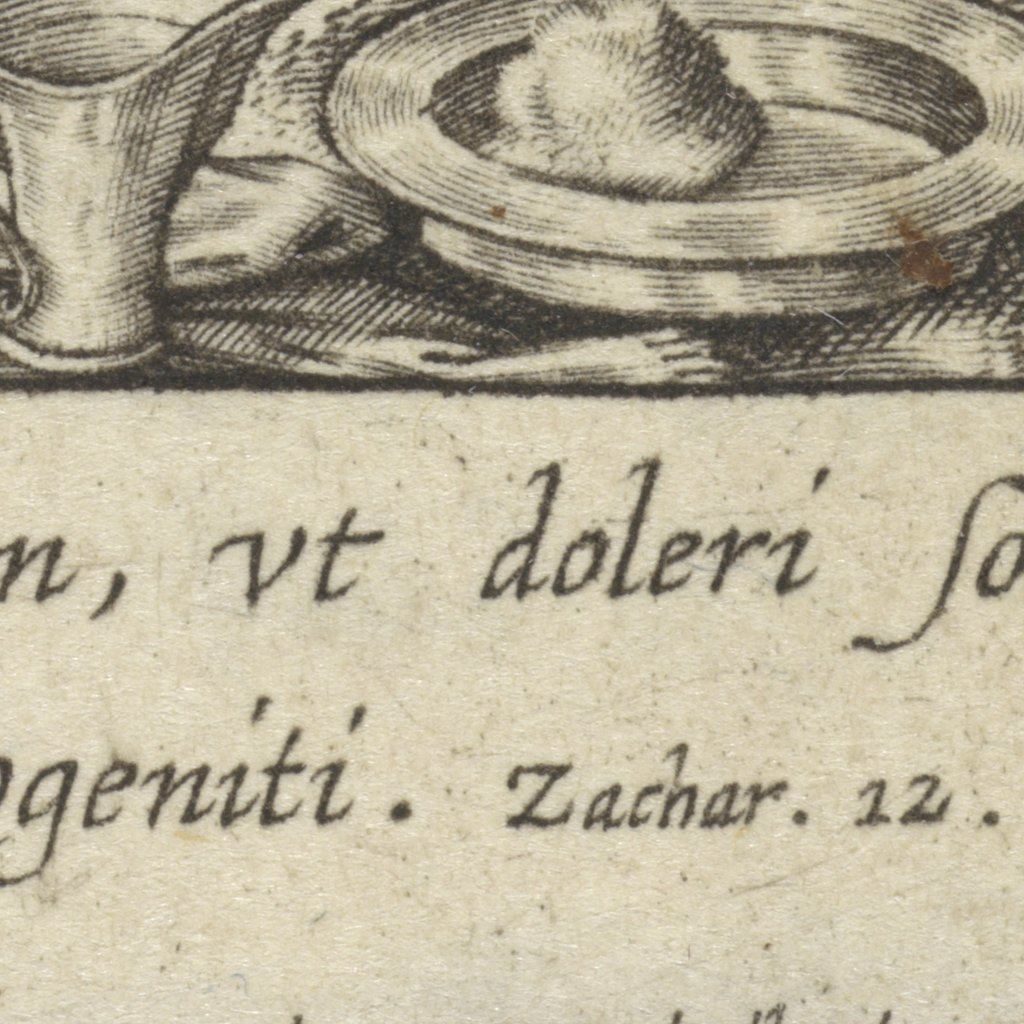 n, vt doleri ſo
ogeniti. Zachar. 12.